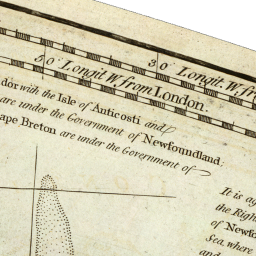 50 Longit W. from London.
30 Longit. W. fro
dor with the Isle of Anticosti and
are under the Government of Newfoundland;
ape Breton are under the Government of
It is ag
the Right
of Newfo
Sea, where
and